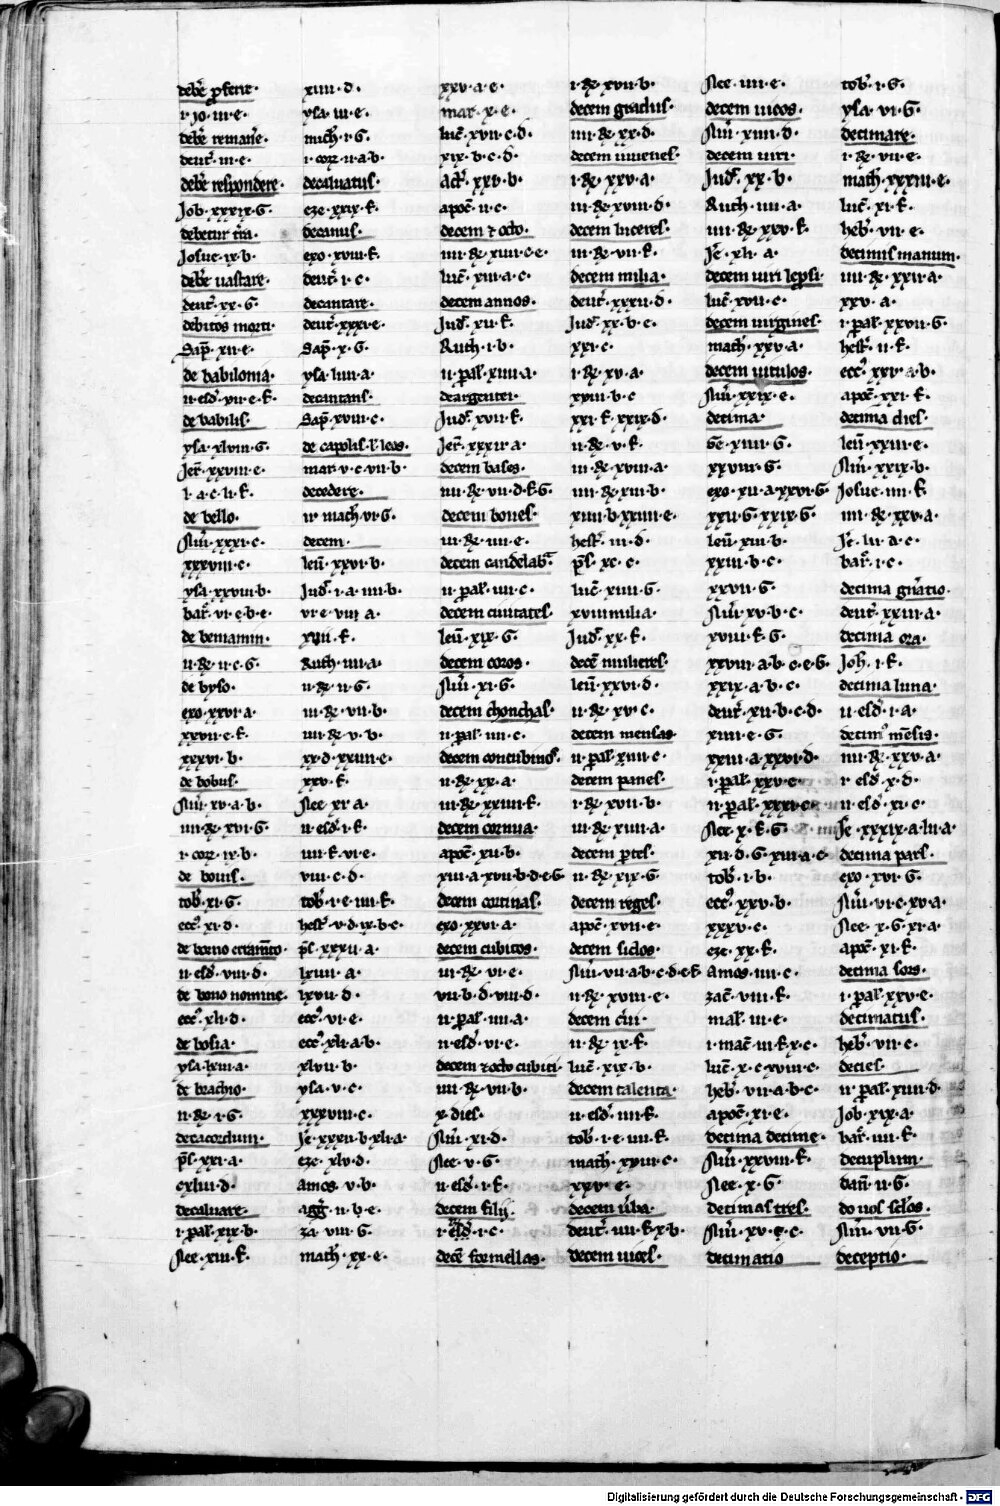 debēt ꝓferre·
i·io·iii·e·
debēt remane·
deut̄·iii·e·
debēt respondere·
Job·xxxix·G·
debetur
Josue·ix·b·
debēt uastare·
deut̄·xx·G·
debitos morti·
Sap̄·xii·e·
de babilonia·
ii·esd̄·vii·e·f·
de babilis·
ysa·xlviii·G·
Jer̄·xxviii·e·
l·a·c·li·f·
de bello·
Nūi·xxxi·c·
xxxviii·c·
ysa·xxviii·b·
bar̄·vi·c·b·e·
de beniamin·
ii·Rꝫ·ii·c·G·
de bysso·
exo·xxvi·a·
xxvii·e·f·
xxxvi·b·
de bobus·
Nūi·xv·a·b·
iiii·Rꝫ·xvi·G·
i·cor·ix·b·
de bouis·
tob̄·xi·G·
ecc̄·xi·d·
de bono
ii·esd̄·viii·d·
de bono nomine·
ecc̄·xli·d·
de bosra·
ysa·lxiii·a·
de brachio·
ii·Rꝫ·i·G·
decacordum·
ps̄·xxi·a·
cxliii·d·
decaluare·
i·pal̄·xix·b·
Nee·xiii·f·
xiiii·d·
ysa·iii·e·
mich̄·i·G·
i·cor·ii·a·b·
decaluatus·
eze·xxix·f·
decanus·
exo·xviii·f·
deut̄·i·c·
decantare·
deut̄·xxxi·e·
Sap̄·x·G·
ysa·liiii·a·
decantans·
Sap̄·xviii·c·
de capolis·l·leos·
mar·v·c·vii·b·
decedere·
ii·mach̄·vi·G·
decem·
leui̅·xxvi·b·
Jud̄·i·a·iiii·b·
vi·e·viii·a·
xviii·f·
Ruth·iiii·a·
ii·Rꝫ·ii·G·
iii·Rꝫ·vii·b·
iiii·Rꝫ·v·b·
xx·d·xxiiii·e·
xxv·f·
Nee·xi·a·
ii·esd̄·i·f·
iiii·f·vi·e·
viii·c·d·
tob̄·i·e·iiii·f·
hest̄·v·d·ix·b·c·
ps̄·xxxii·a·
lxiii·a·
lxvii·d·
ecc̄·vi·e·
ecc̄·xli·a·b·
xlvii·b·
ysa·v·c·
xxxviii·c·
Je·xxxii·b·xli·a·
eze·xlv·d·
amos·v·b·
agḡ·ii·b·e·
za·viii·G·
math̄·xx·e·
xxv·a·e·
mar·x·e·
luc̄·xvii·c·d·
xix·b·c·d·
act̄·xxv·b·
apoc̄·ii·c·
decem ⁊ octo·
iiii·Rꝫ·xxiii·c·e·
luc̄·xiii·a·c·
decem annos·
Jud̄·xii·f·
Ruth·i·b·
ii·pal̄·xiiii·a·
deargentei·
Jud̄·xvii·f·
Jer̄·xxxii·a·
decem bases·
iiii·Rꝫ·vii·d·f·G·
decem boues·
iii·Rꝫ·iiii·e·
decem candelab̄a·
ii·pal̄·iiii·c·
decem ciuitates·
leui̅·xix·G·
decem coros·
Nūi·xi·G·
decem chonchas·
ii·pal̄·iiii·c·
decem concubinas·
ii·Rꝫ·xx·a·
iii·Rꝫ·xxiiii·f·
decem cornua·
apoc̄·xii·b·
xiii·a·xvii·b·d·e·G·
decem cortinas·
exo·xxvi·a·
decem cubitos·
iii·Rꝫ·vi·e·
vii·b·d·viii·d·
ii·pal̄·iiii·a·
ii·esd̄·vi·e·
decem ⁊octo cubiti
iiii·Rꝫ·vii·b·
x·dies·
Nūi·xi·d·
Nee·v·G·
ii·esd̄·i·f·
decem filij·
i·esd̄·i·c·
decē formellas·
i·Rꝫ·xvii·b·
decem gradus·
iiii·Rꝫ·xx·d·
decem iuuenes·
i·Rꝫ·xxv·a·
iii·Rꝫ·xviii·d·
decem luceres·
iii·Rꝫ·vii·f·
decem milia·
deut̄·xxxii·d·
Jud̄·xx·b·c·
xxi·c·
i·Rꝫ·xv·a·
xviii·b·c·
xxi·f·xxix·d·
ii·Rꝫ·v·f·
iii·Rꝫ·xviii·a·
iiii·Rꝫ·xiii·b·
xiiii·b·xxiiii·e·
hest̄·iii·d·
ps̄·xc·c·
luc̄·xiiii·G·
xviii milia·
Jud̄·xx·f·
decē mulieres·
leui̅·xxvi·d·
ii·Rꝫ·xv·c·
decem mensas·
ii·pal̄·xiiii·c·
decem panes·
i·Rꝫ·xvii·b·
iii·Rꝫ·xiiii·a·
decem ꝑtes·
ii·Rꝫ·xix·G·
decem reges·
apoc̄·xvii·e·
decem siclos·
Nūi·vii·a·b·c·d·e·f·
ii·Rꝫ·xviii·e·
decem
ii·Rꝫ·ix·f·
luc̄·xix·b·
decem talenta·
ii·esd̄·iiii·f·
tob̄·i·e·iiii·f·
math̄·xxviii·c·
xxv·e·
decem ūba·
deut̄·iiii·f·x·b·
decem uices·
Nee·iiii·e·
decem uicos·
Nūi·xiiii·d·
decem uiri·
Jud̄·xx·b·
Ruth·iiii·a·
iiii·Rꝫ·xxv·f·
Je·xli·a·
decem uiri lep̄si·
luc̄·xvii·c·
decem uirgines·
math̄·xxv·a·
decem uitulos·
Nūi·xxix·e·
decima·
Ge·xiiii·G·
xxviii·G·
exo·xii·a·xxvi·G·
xxii·G·xxix·G·
leui̅·xiii·b·
xxiii·b·c·
xxvii·G·
Nūi·xv·b·c·
xviii·f·G·
xxviii·a·b·c·e·G·
xxix·a·b·c·
deut̄·xii·b·c·d·
xiiii·e·G·
xxiii·a·xxvi·d·
i·pal̄·xxv·e·
ii·pal̄·xxxi·c·
Nee·x·f·G·
xii·d·G·xiii·a·c·
tob̄·i·b·
ecc̄·xxv·b·
xxxv·c·
eze·xx·f·
Amos·iiii·c·
zac̄·viii·f·
mal̄·iii·e·
i·mac̄·iii·f·x·c·
luc̄·x·c·xviii·c·
heb̄·vii·a·b·c·
apoc̄·xi·e·
decima decime·
Nūi·xxviii·f·
Nee·x·G·
decimas tres·
Nūi·xv·c·c·
decimatio
tob̄·i·G·
ysa·vi·G·
decimare·
i·Rꝫ·vii·e·
math̄·xxxiii·e·
luc̄·xi·f·
heb̄·vii·e·
decimis manum·
iiii·Rꝫ·xxii·a·
xxv·a·
i·pal̄·xxvii·G·
hest̄·ii·f·
ecc̄·xxi·a·b·
apoc̄·xxi·f·
decima dies·
leui̅·xxiii·e·
Nūi·xxix·b·
Josue·iiii·f·
iiii·Rꝫ·xxv·a·
Je·lii·a·c·
bar̄·i·c·
decima gn̄atio·
deut̄·xxiii·a·
decima ora·
Joh̄·i·f·
decima luna·
ii·esd̄·i·a·
decim⁹ mēsis·
iiii·Rꝫ·xxv·a·
i·esd̄·x·d·
ii·esd̄·xi·c·
Je·xxxix·a·lii·a·
decima pars·
exo·xvi·G·
Nūi·vi·c·xv·a·
Nee·x·G·xi·a·
apoc̄·xi·f·
decima sors·
i·pal̄·xxv·e·
decimatus·
heb̄·vii·c·
decies·
ii·pal̄·xiiii·d·
Job·xix·a·
bar̄·iiii·f·
decuplum·
dan̄·ii·G·
do uos
Nūi·vii·G·
deceptio·
Digitalisierung gefördert durch die Deutsche Forschungsgemeinschaft · DFG